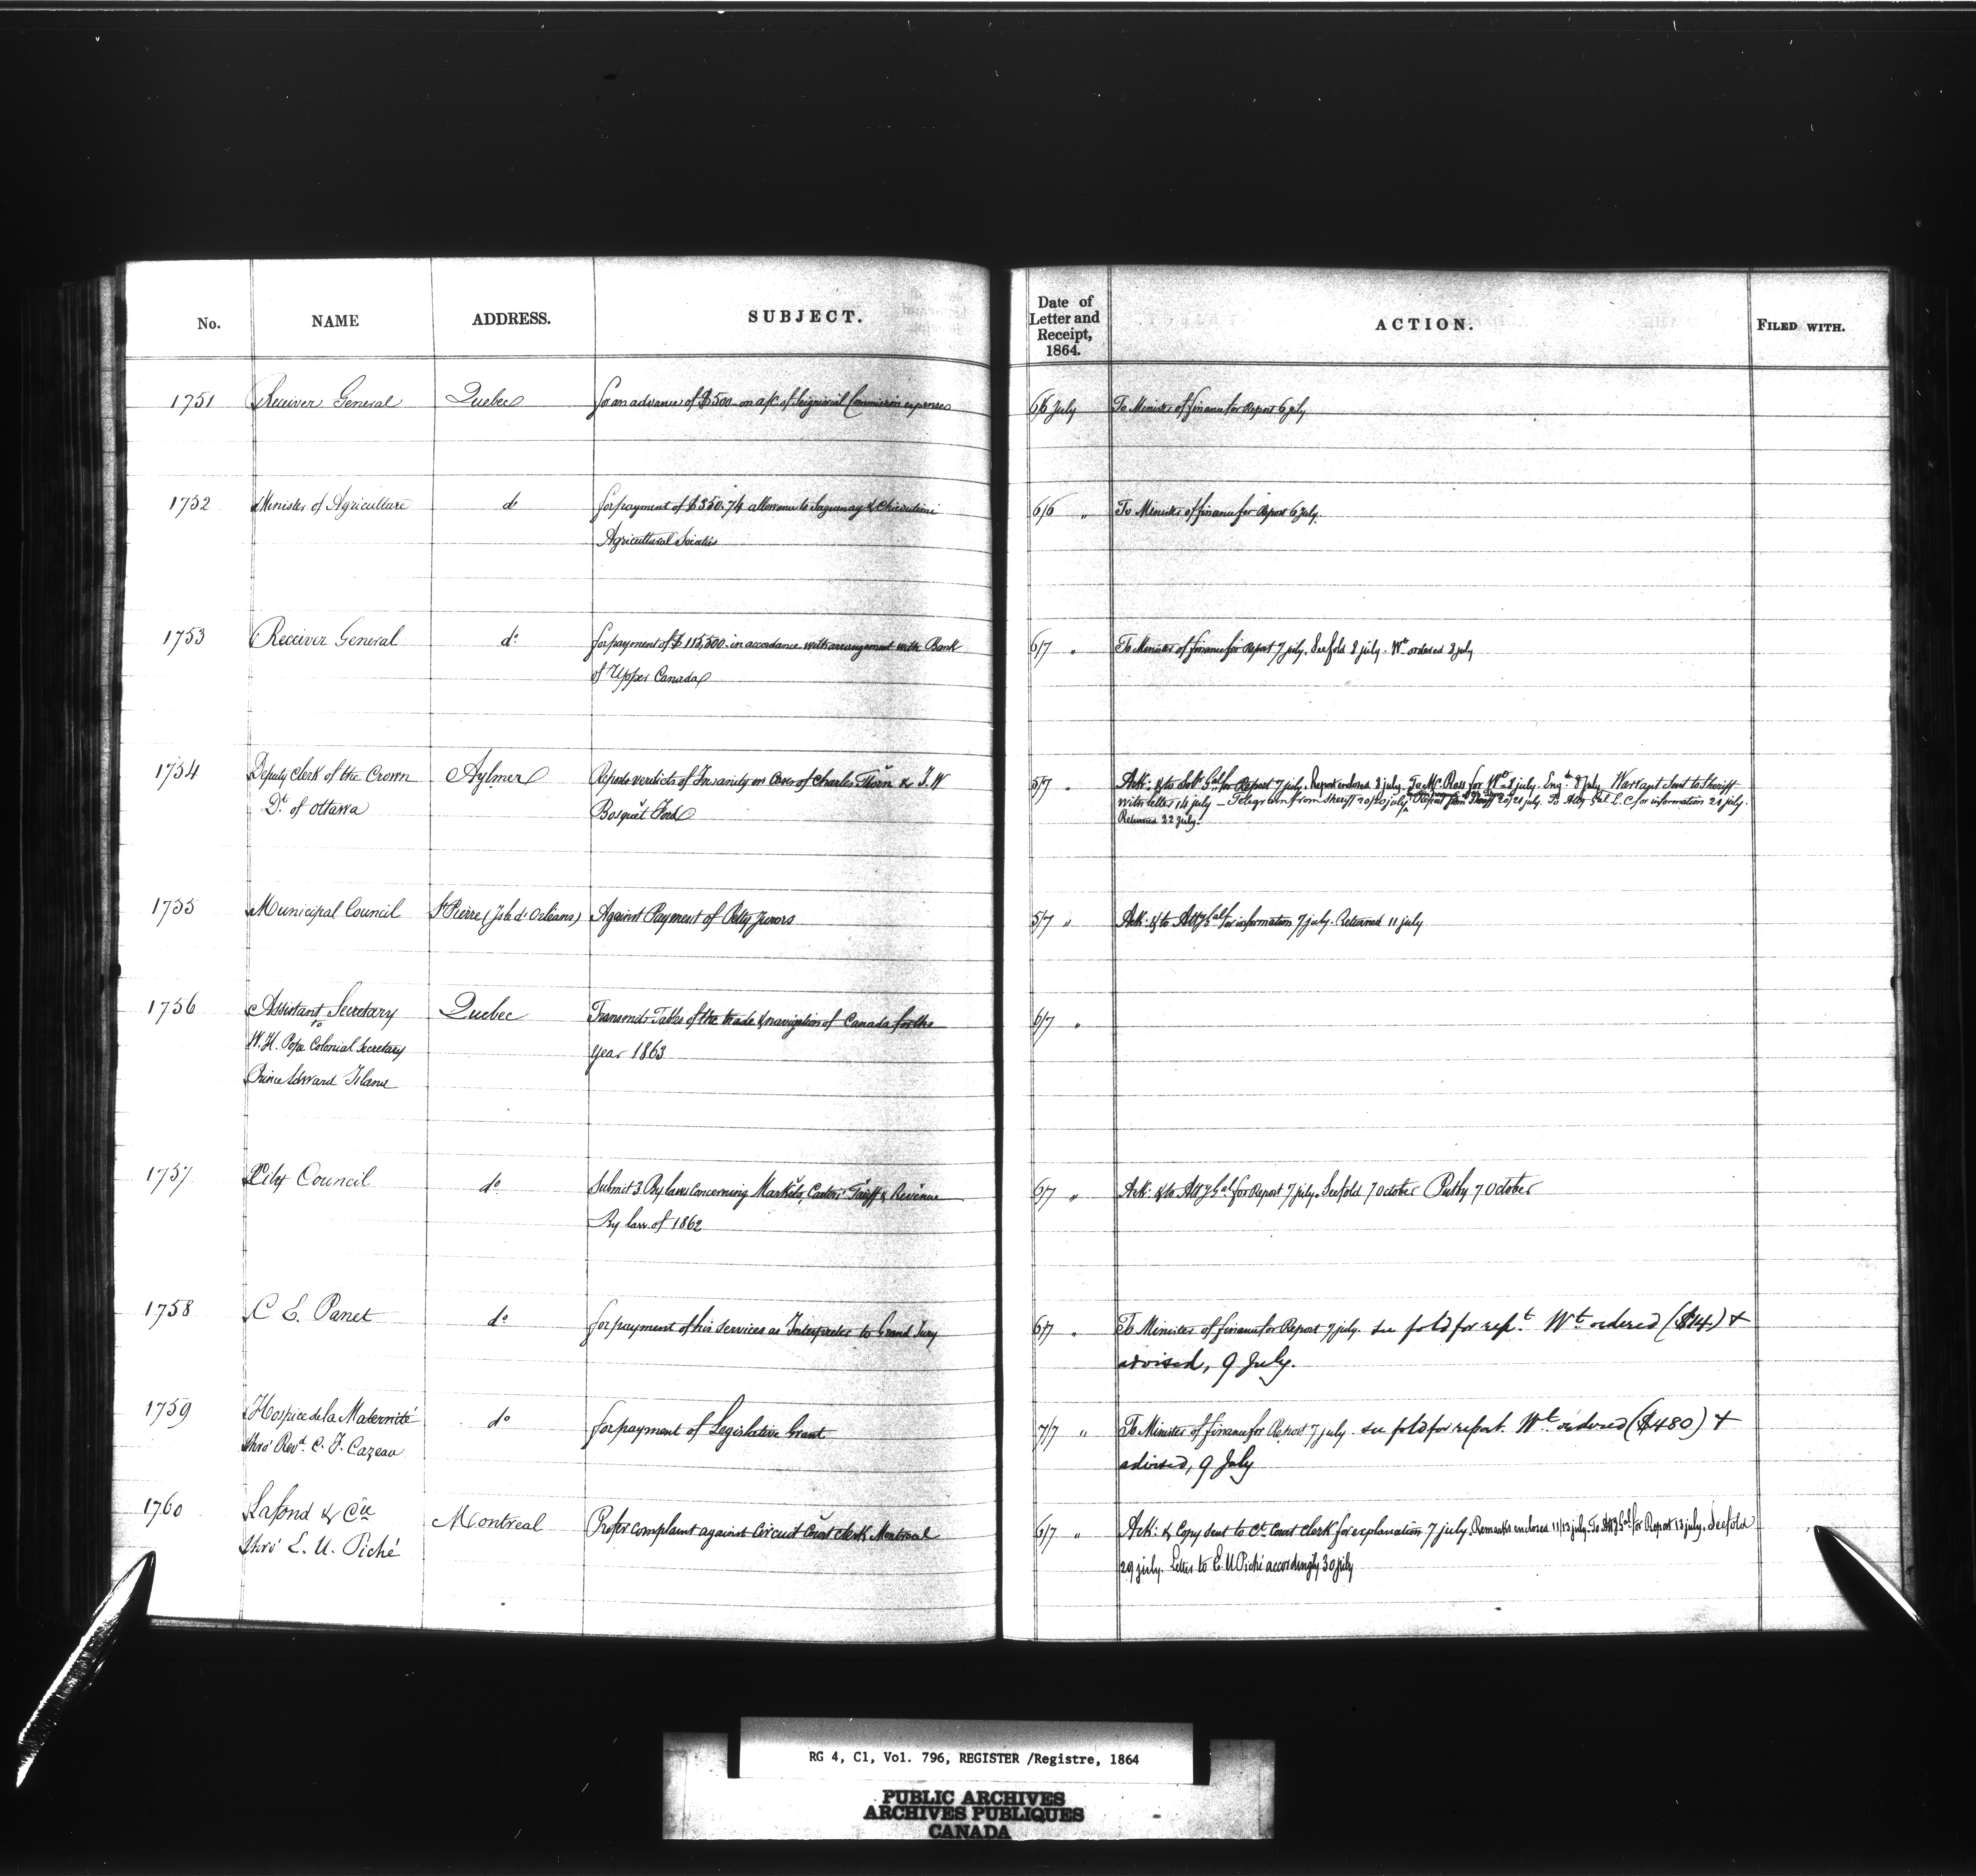 No. NAME ADDRESS. SUBJECT. Date of Letter and Receipt, 1864. ACTION. FILED WITH.
1751 Receiver General Quebec for an advance of $500 on a/c of Seigniorial Commission expenses 6/6 July To Minister of finance for Report 6 july
1752 Minister of Agriculture do for payment of $350.74 allowance to Saguenay & Chicoutimi 6/6 " To Minister of finance for Report 6 july.
Agricultural Societies
1753 Receiver General do for payment of $115,500 in accordance with arrangement with Bank 6/7 " To Minister of finance for Report 7 july. See fold 8 july. Wt ordered 8 july
of Upper Canada
1754 Deputy Clerk of the Crown Aylmer Reports verdicts of Insanity in Cases of Charles Thorn & J. W 5/7 " Ack: & to Solr Genl for Report 7 july. Report enclosed 8 july. To Mr. Ross for Wt 8 july. Eng.d 8 july. Warrant sent to Sheriff
Dt. of Ottawa Bosquet Ford with letter 14 july – Telegram from Sheriff 20/20 july. Report from Sheriff 20/21 july. To Atty Gal L.C. for information 21 july.
Returned 22 july.
1755 Municipal Council St Pierre (Isle d'Orléans) Against Payment of Petty Jurors 5/7 " Ack: & to Atty Gal for information 7 july. Returned 11 july
1756 Assistant Secretary Quebec Transmits Tables of the trade & navigation of Canada for the 6/7 "
to
W. H. Pope Colonial Secretary year 1863
Prince Edward Island
1757 City Council do Submit 3 By laws concerning Markets, Carters' Tariff & Revenue 6/7 " Ack: & to Atty Gal for Report 7 july. See fold 7 October Put by 7 October
By law of 1862
1758 C E. Panet do for payment of his services as Interpreter to Grand Jury 6/7 " To Minister of finance for Report 7 july. see fold for rept. Wt ordered ($14) &
advised, 9 July.
1759 Hospice de la Maternité do for payment of Legislative Grant 7/7 " To Minister of finance for Report 7 july. see fold for report. Wt ordered ($480) &
thro' Revd. C. F. Cazeau advised, 9 July
1760 Lafond & Cie Montreal Prefer complaint against Circuit Court Clerk Montreal 6/7 " Ack: & Copy sent to Ct. Court Clerk for explanation 7 july. Remarks enclosed 11/13 july. To Atty Gal for Report 13 july. See fold
thro' E. U. Piché 29 july. Letter to E. U Piché accordingly 30 july
RG 4, C1, Vol. 796, REGISTER /Registre, 1864
PUBLIC ARCHIVES
ARCHIVES PUBLIQUES
CANADA